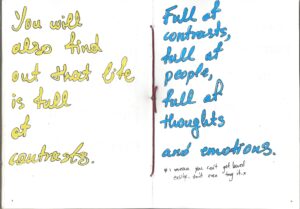 You will
also find
out that life
is full
of
contrasts.
Full of
contrasts,
full of
people,
full of
thoughts
and emotions.
I you can't get bored